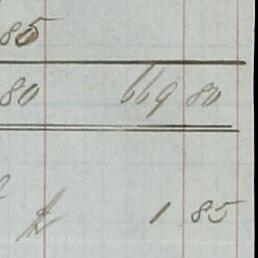 85
80 669 80
1 85